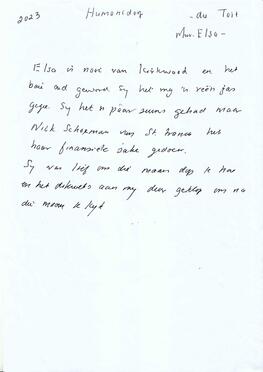 2023 Humansdorp - du Toit
Mev. Elsa -
Elsa is nooi van Kirkwood en het
baie oud geword Sy het my 'n reën jas
gegee Sy het 'n paar seuns gehad maar
Nick Schoeman van St Francis het
haar finansiele sake gedoen.
Sy was lief om die maan dop te hou
en het dikwels aan my deur geklop om na
die maan te kyk